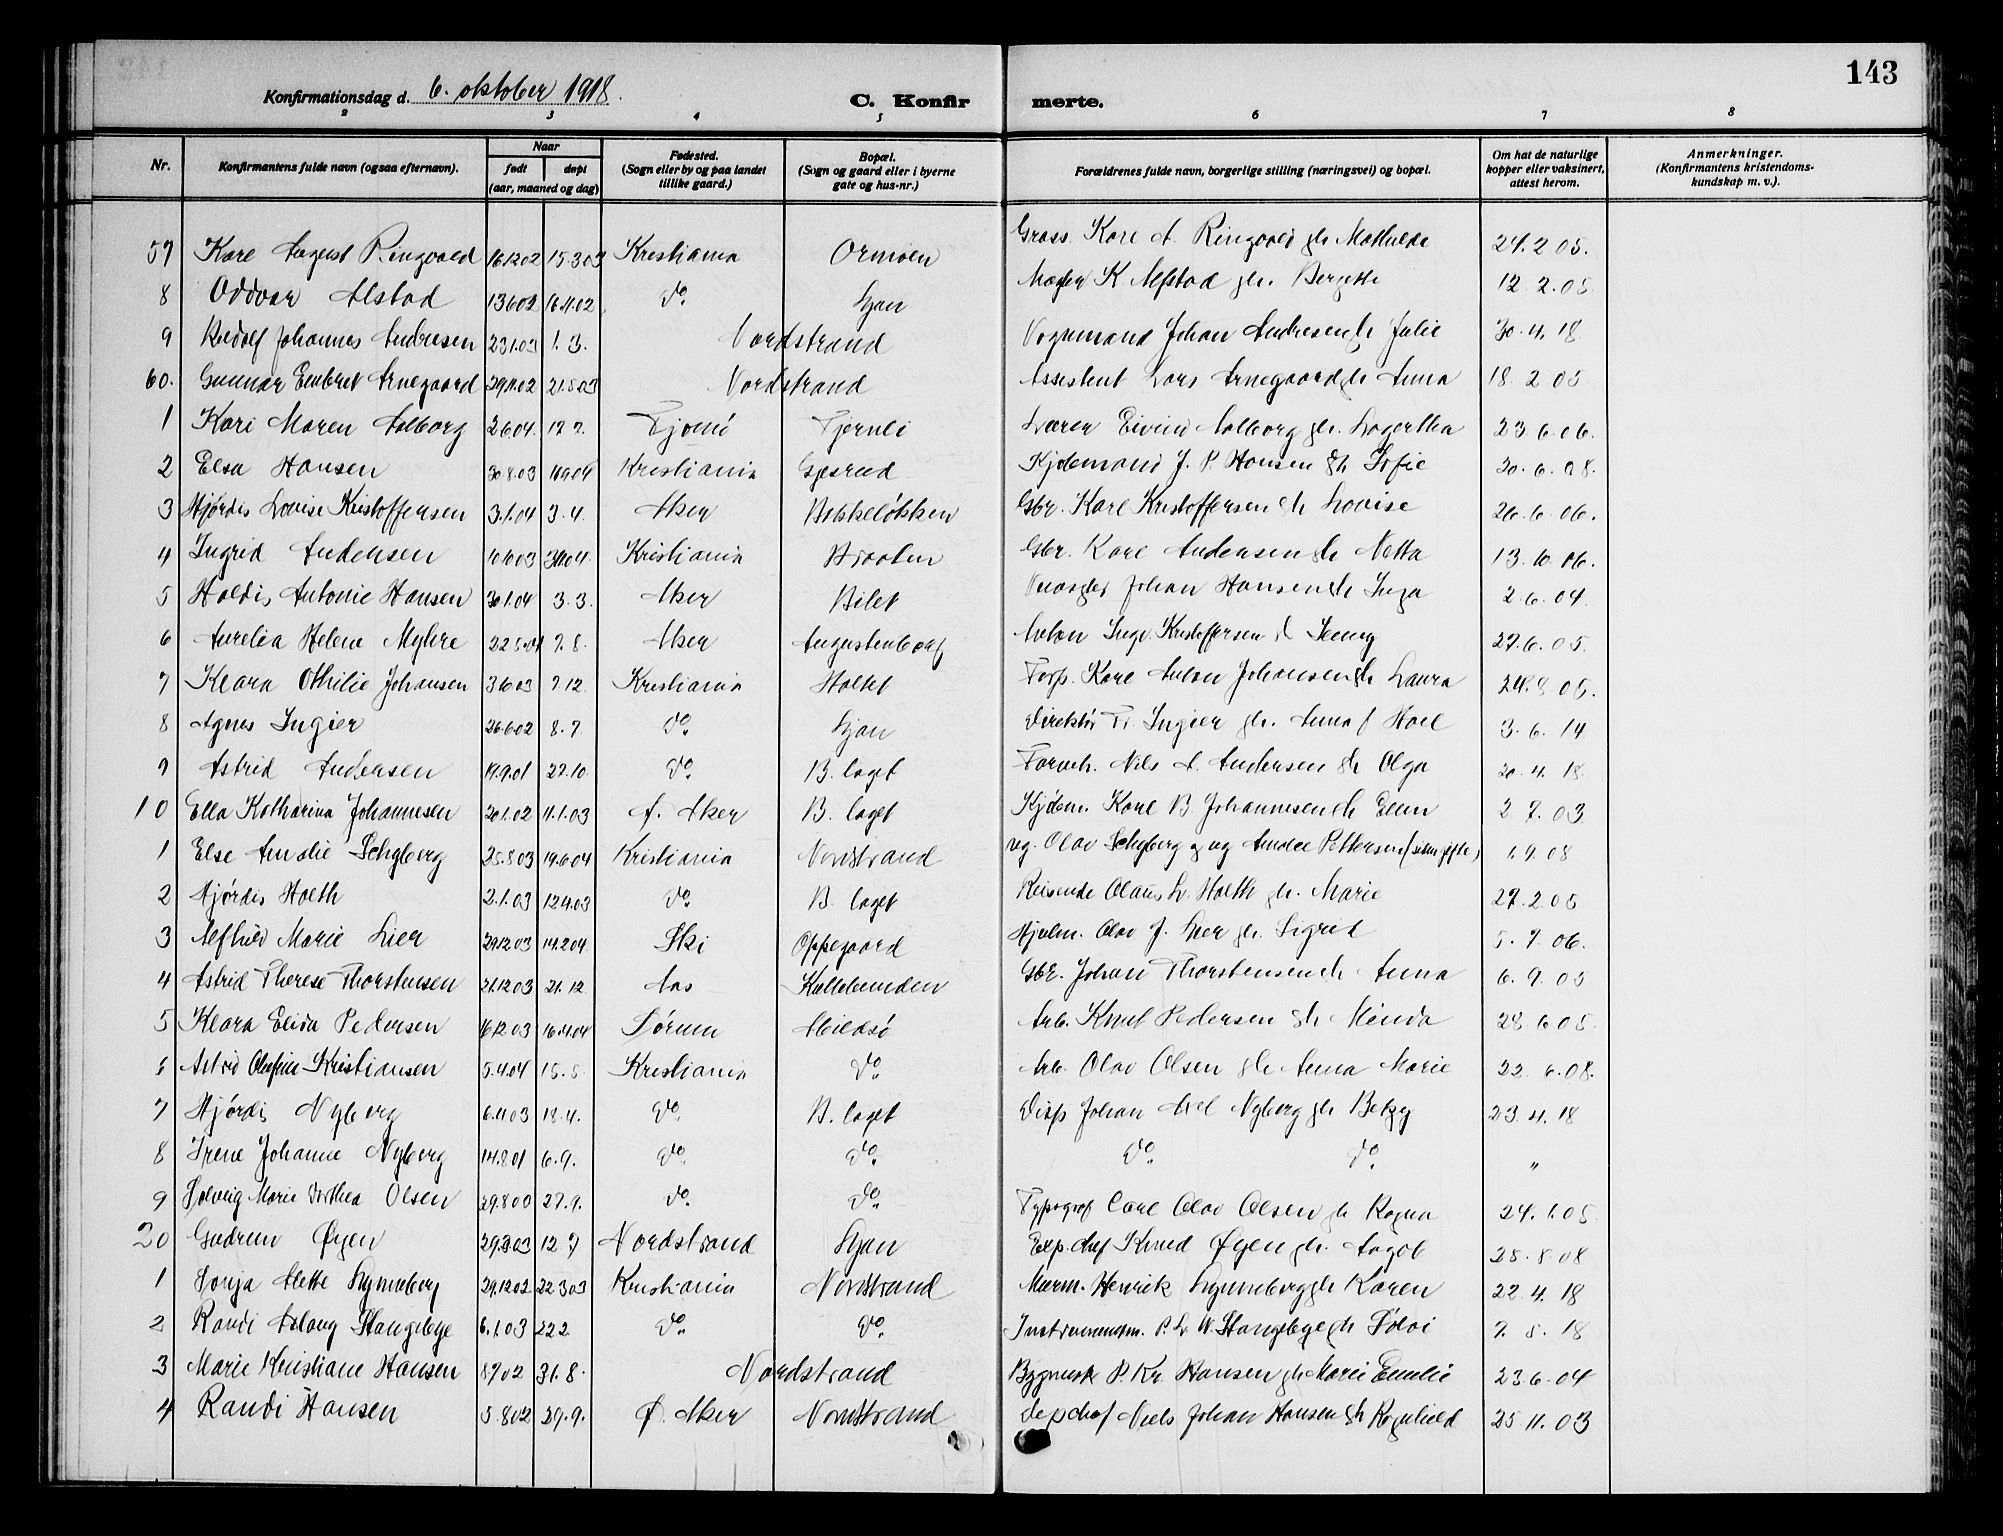 143
Konfirmationsdag d. 6. oktober 1918.
C. Konfir merte.
2 3 4 5 6 7 8
Nr. Konfirmantens fulde navn (ogsaa efternavn). Naar født døpt (aar, maaned og dag) Fødested. (Sogn eller by og paa landet tillike gaard.) Bopæl. (Sogn og gaard eller i byerne gate og hus-nr.) Forældrenes fulde navn, borgerlige stilling (næringsvei) og bopæl. Om hat de naturlige kopper eller vaksinert, attest herom. Anmerkninger. (Konfirmantens kristendoms-kundskap m. v.).
57 Kare August Ringvold 16.12.02 15.3.03 Kristiania Ormøen Gross. Kare A. Ringvold gh Mathilde 24.2.05.
8 Oddvar Alstad 13.6.02 16.11.02 do. Ljan K Alstad gh. Bergette 12.2.05
9 Rudolf Johannes Andresen 23.1.03 1.3. Nordstrand Vognmand Johan Andresen gh Julie 30.4.18
60. Gunnar Embret Arnegaard 29.11.02 21.5.03 Nordstrand Assistent Lars Arnegaard gh Anna 18.2.05
1 Kari Maren Aalborg 2.6.04 17.7. Tjømø Tjernli Lærer Eivind Aalborg gh. Lagertha 23.6.06.
2 Elsa Hansen 30.8.03 Kristiania Gjesrud Kjøbmand J. P. Hansen gh Sofie 30.6.08.
3 Hjørdis Lovise Kristoffersen 3.1.04 3.4. Aker Bekkeløkken Gbr. Karl Kristoffersen gh Lovise 26.6.06.
4 Ingrid Andersen Kristiania Braaten Gbr. Karl Andersen gh Netta 13.10.06.
5 Haldis Antonie Hansen 30.1.04 3.3. Aker Bilet Johan Hansen gh Inga 2.6.04
6 Aurelia Helene Myhre 22.5.04 7.8. Aker Augustenborg Anton Ingv. Kristoffersen & Jenny 27.6.05.
7 Klara Othilie Johansen 3.6.03 7.12 Kristiania Holtet Karl Anton Johansen gh Laura 24.8.05.
8 Agnes Ingier 26.6.02 8.7. do. Ljan Direktør Fr Ingier gh. Anna f Hoel 3.6.14
9 Astrid Andersen 19.9.01 27.10. do. B. laget Nils A. Andersen gh Olga 30.4.18.
10 Ella Katharina Johannesen 20.1.02 11.1.03 Ø. Aker B. laget Kjøbm. Karl B. Johannesen gh Elen 2.7.03
1 Else Amalie Schyberg 25.8.03 19.6.04 Kristiania Nordstrand ug. Olav Schyberg og ug Amalie Pettersen 1.9.08
2 Hjørdis Holth 2.1.03 12.4.03 do. B. laget Reisende Olaus L. Holth gh. Marie 27.2.05
3 Alfhild Marie Lier 29.12.03 14.2.04 Ski Oppegaard Olav J. Lier gh. Sigrid 5.7.06.
4 Astrid Therese Thorstensen 21.12.03 21.12 Aas Kullebunden Gbr. Johan Thorstensen gh Anna 6.9.05
5 Klara Elida Pedersen 16.12.03 16.4.04 Sørum Hvidsø Arb. Knut Pedersen gh Minda 28.6.05
6 Astrid Olufine Kristiansen 5.4.04 15.5 Kristiania do. Arb. Olav Olsen gh Anna Marie 22.6.08.
7 Hjørdis Nyberg 6.11.03 18.4. do. B. laget Disp Johan Axel Nyberg gh Betzy 23.4.18
8 Irene Johanne Nyberg 14.8.01 6.9. do. do. do. do. "
9 Solveig Marie Dorthea Olsen 29.8.00 27.9. do. do. Typograf Carl Olav Olsen gh Ragna 24.1.05
20 Gudrun Øyen 29.3.03 12.7 Nordstrand Ljan Exp. chef Knud Øyen gh. Aagot 25.8.08
1 Sonja Alette Lynneberg 29.12.02 22.3.03 Kristiania Nordstrand Murm. Henrik Lynneberg gh Karen 22.4.18
2 Randi Aslaug Stangebye 6.1.03 22.2 do. do. Instrumentm. P. L. W. Stangebye gh Sølvi 7.5.18
3 Marie Kristiane Hansen 8.7.02 31.8. Nordstrand P. Kr. Hansen gh Marie Emilie 23.6.04
4 Randi Hansen 5.8.02 29.9. Ø. Aker Nordstrand Niels Johan Hansen gh Ragnhild 25.11.03